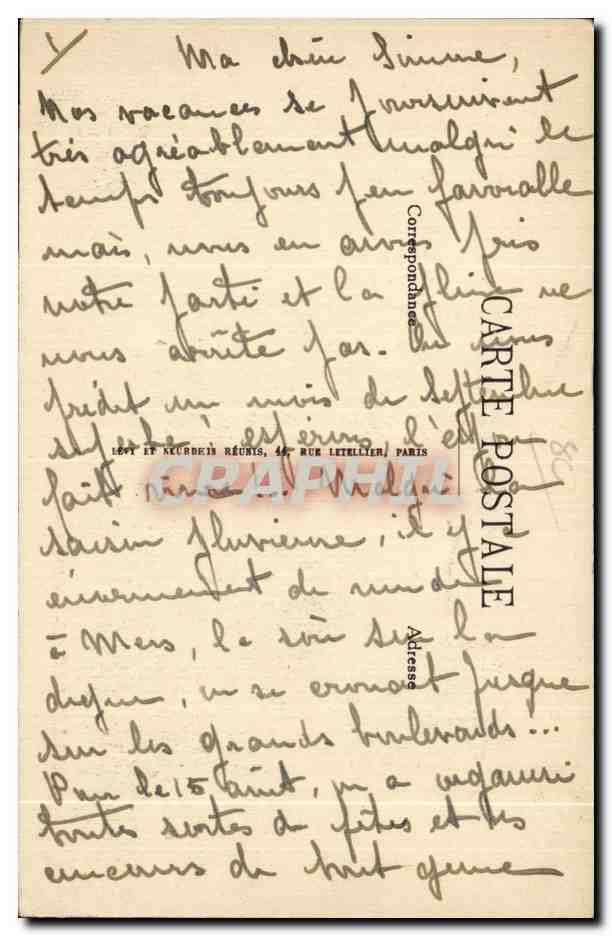 Ma chère Simone,
Nos vacances se poursuivent
très agréablement malgré le
temps toujours peu favorable
mais, nous en avons pris
notre parti et la pluie ne
nous arrête pas. On nous
prédit un mois de Septembre
superbe à espérons, l'est
fait vivre... Malgré la
saison pluvieuse, il y a
énormément de monde
à Mers, le soir sur la
digue, on se croirait presque
sur les grands boulevards...
Pour le 15 août, on a organisé
toutes sortes de fêtes et des
concours de tout genre
Correspondance
CARTE POSTALE
Adresse
LÉVY ET NEURDEIN RÉUNIS, 44, RUE LETELLIER, PARIS
CRAPHIL
80